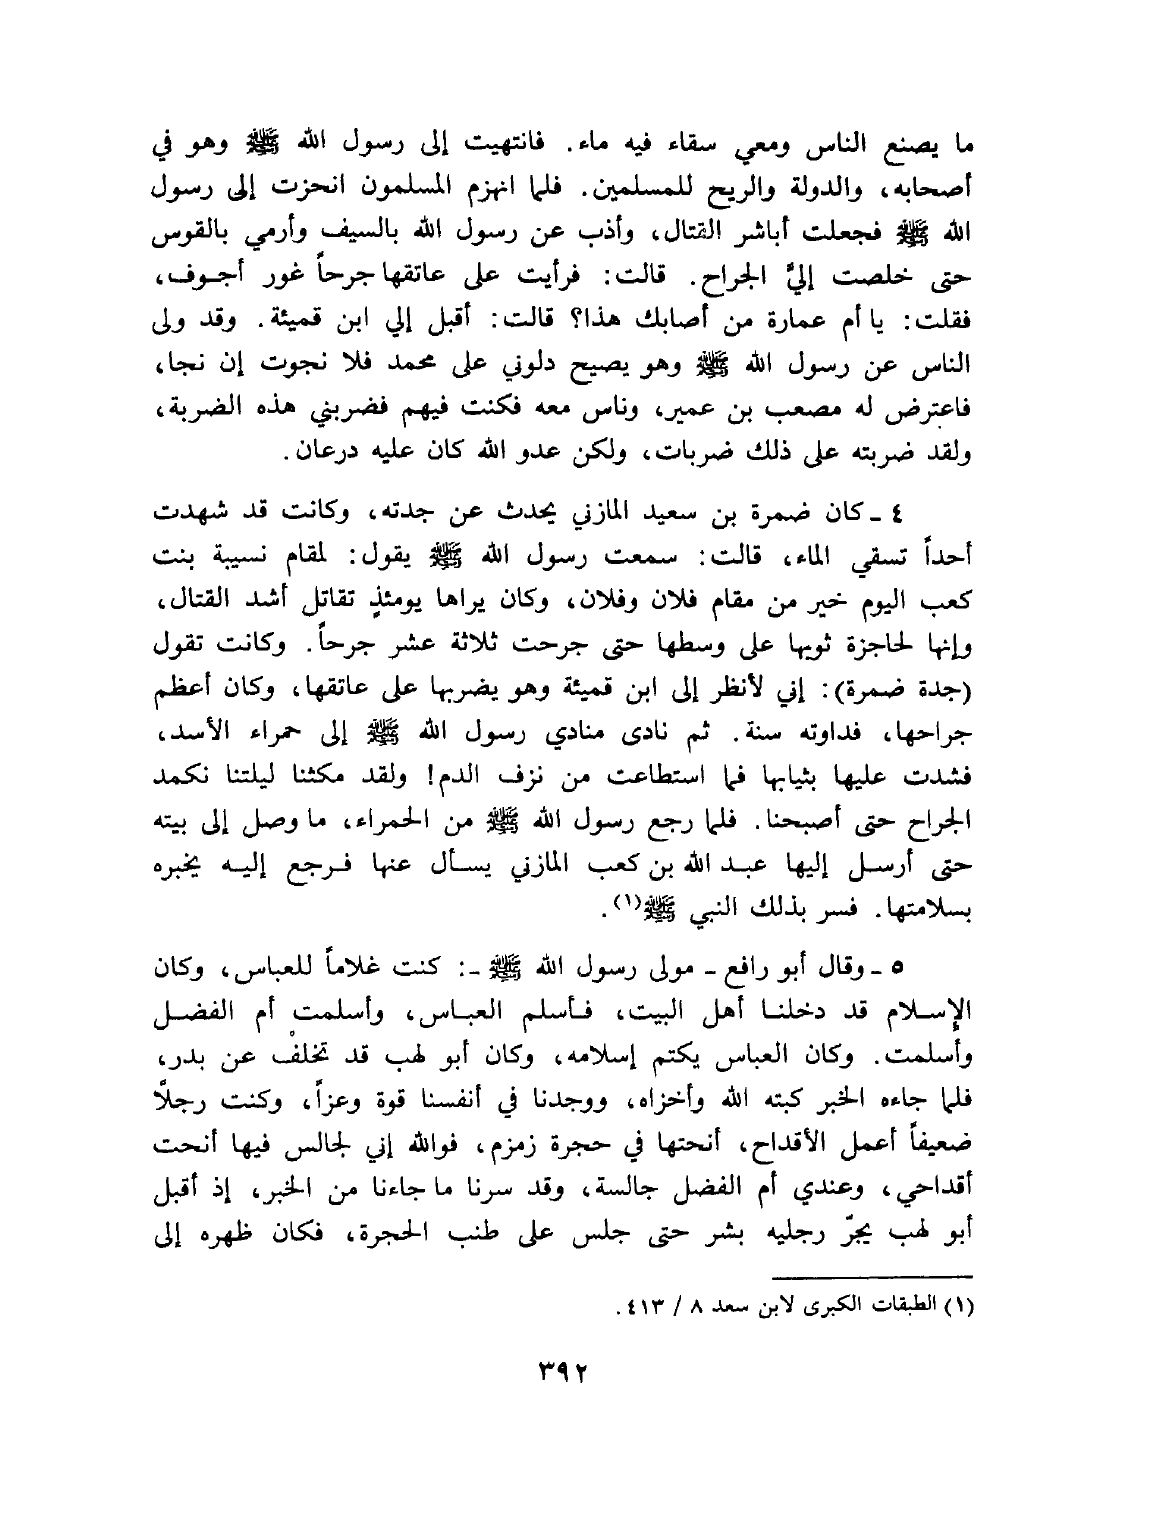 ما يصنع الناس ومعي سقاء فيه ماء. فانتهيت إلى رسول الله ﷺ وهو في
أصحابه، والدولة والريح للمسلمين. فلما انهزم المسلمون انحزت إلى رسول
الله ﷺ فجعلت أباشر القتال، وأذب عن رسول الله بالسيف وأرمي بالقوس
حتى خلصت إليَّ الجراح. قالت: فرأيت على عاتقها جرحاً غور أجوف،
فقلت: يا أم عمارة من أصابك هذا؟ قالت: أقبل إلي ابن قميئة. وقد ولى
الناس عن رسول الله ﷺ وهو يصيح دلوني على محمد فلا نجوت إن نجا،
فاعترض له مصعب بن عمير، وناس معه فكنت فيهم فضربني هذه الضربة،
ولقد ضربته على ذلك ضربات، ولكن عدو الله كان عليه درعان.
٤ ـ كان ضمرة بن سعيد المازني يحدث عن جدته، وكانت قد شهدت
أحداً تسقي الماء، قالت: سمعت رسول الله ﷺ يقول: لمقام نسيبة بنت
كعب اليوم خير من مقام فلان وفلان، وكان يراها يومئذٍ تقاتل أشد القتال،
وإنها لحاجزة ثوبها على وسطها حتى جرحت ثلاثة عشر جرحاً. وكانت تقول
(جدة ضمرة): إني لأنظر إلى ابن قميئة وهو يضربها على عاتقها، وكان أعظم
جراحها، فداوته سنة. ثم نادى منادي رسول الله ﷺ إلى حمراء الأسد،
فشدت عليها بثيابها فما استطاعت من نزف الدم! ولقد مكثنا ليلتنا نكمد
الجراح حتى أصبحنا. فلما رجع رسول الله ﷺ من الحمراء، ما وصل إلى بيته
حتى أرسل إليها عبد الله بن كعب المازني يسأل عنها فرجع إليه يخبره
بسلامتها. فسر بذلك النبي ﷺ(١).
٥ ـ وقال أبو رافع ـ مولى رسول الله ﷺ ـ: كنت غلاماً للعباس، وكان
الإسلام قد دخلنا أهل البيت، فأسلم العباس، وأسلمت أم الفضل
وأسلمت. وكان العباس يكتم إسلامه، وكان أبو لهب قد تخلف عن بدر،
فلما جاءه الخبر كبته الله وأخزاه، ووجدنا في أنفسنا قوة وعزاً، وكنت رجلاً
ضعيفاً أعمل الأقداح، أنحتها في حجرة زمزم، فوالله إني لجالس فيها أنحت
أقداحي، وعندي أم الفضل جالسة، وقد سرنا ما جاءنا من الخبر، إذ أقبل
أبو لهب يجرّ رجليه بشر حتى جلس على طنب الحجرة، فكان ظهره إلى
(١) الطبقات الكبرى لابن سعد ٨ / ٤١٣.
٣٩٢